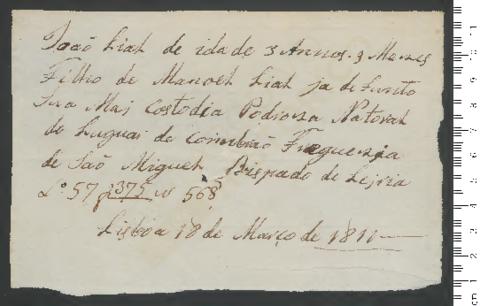 João Lial de idade 3 Annos. 3 Mezes
Filho de Manoel Lial ja defunto
Sua Mai Custodia Pedroza Natoral
do Lugar de Freguezia
de São Miguel Bispado de Lejria
Lº 57 f 375 nº 568
Lisboa 18 de Março de 1811